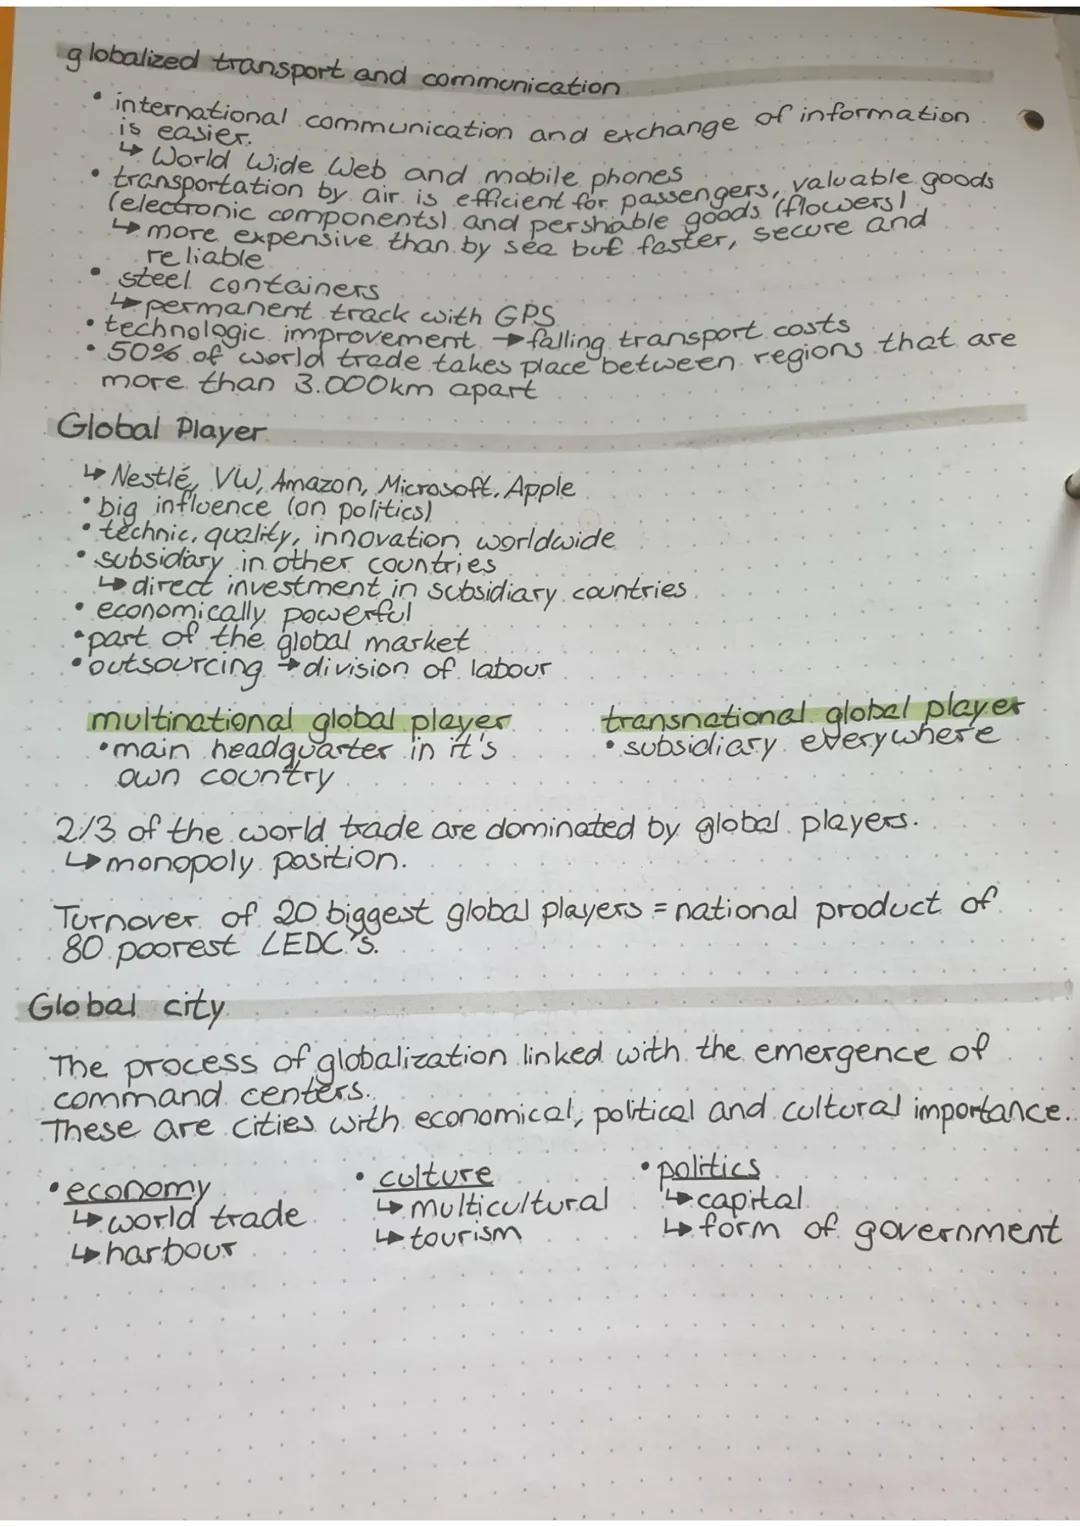 globalized transport and communication
• international communication and exchange of information
is easier.
↳ World Wide Web and mobile phones
• transportation by air is efficient for passengers, valuable goods
(electronic components) and pershable goods (flowers)
↳ more expensive than by sea but faster, secure and
reliable
• steel containers
↳ permanent track with GPS
• technologic improvement → falling transport costs
• 50% of world trade takes place between regions that are
more than 3.000km apart
Global Player
↳ Nestlé, VW, Amazon, Microsoft, Apple
• big influence (on politics)
• technic, quality, innovation worldwide
• subsidiary in other countries
↳ direct investment in subsidiary countries
• economically powerful
• part of the global market
• outsourcing → division of labour
multinational global player
• main headquarter in it's
own country
transnational global player
• subsidiary everywhere
2/3 of the world trade are dominated by global players.
↳ monopoly position.
Turnover of 20 biggest global players = national product of
80 poorest LEDC's.
Global city
The process of globalization linked with the emergence of
command centers.
These are cities with economical, political and cultural importance.
• economy
↳ world trade
↳ harbour
• culture
↳ multicultural
↳ tourism
• politics
↳ capital
↳ form of government